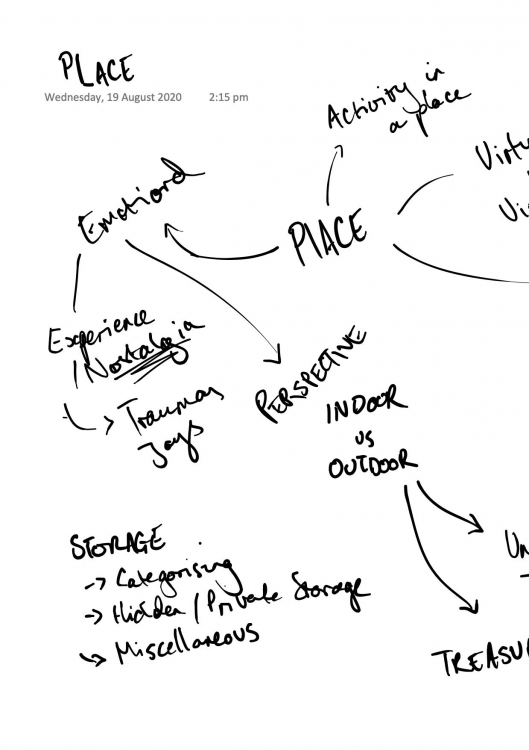 PLACE
Wednesday, 19 August 2020 2:15 pm
Activity in
a place
Emotional
PLACE
Experience
/ Nostalgia
Traumas
Joys
PERSPECTIVE
INDOOR
vs
OUTDOOR
STORAGE
-> Categorising
-> Hidden / Private Storage
-> Miscellaneous